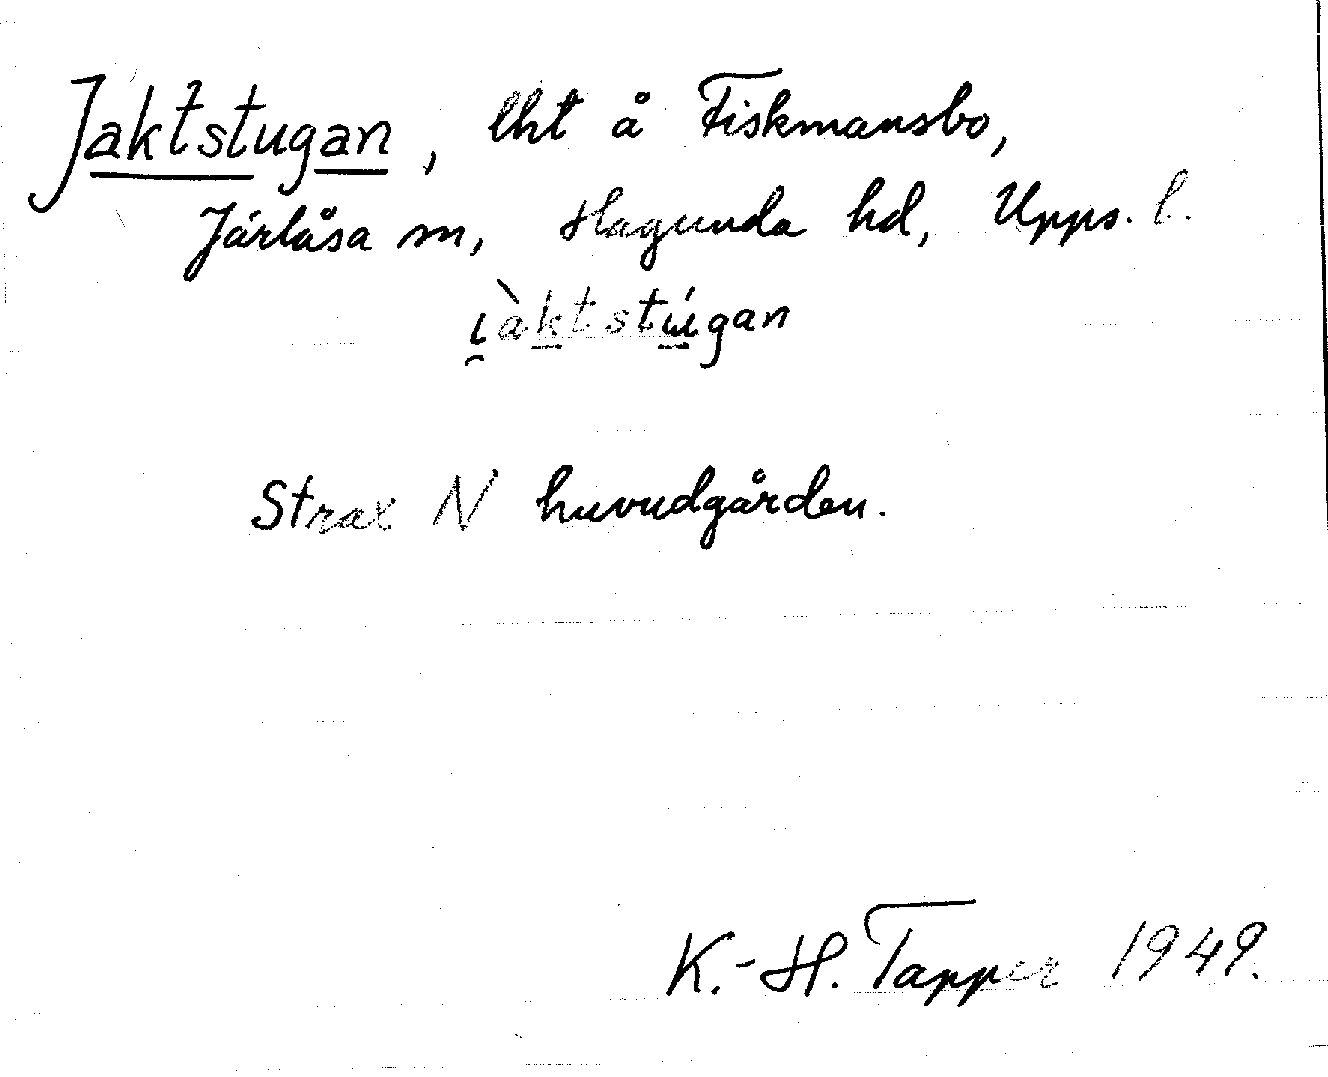 Jaktstugan, lht å Fiskmansbo,
Järlåsa sn, Hagunda hd, Upps. l.
i̯àktstúgan
Strax N huvudgården.
K.-H. Tapper 1949.